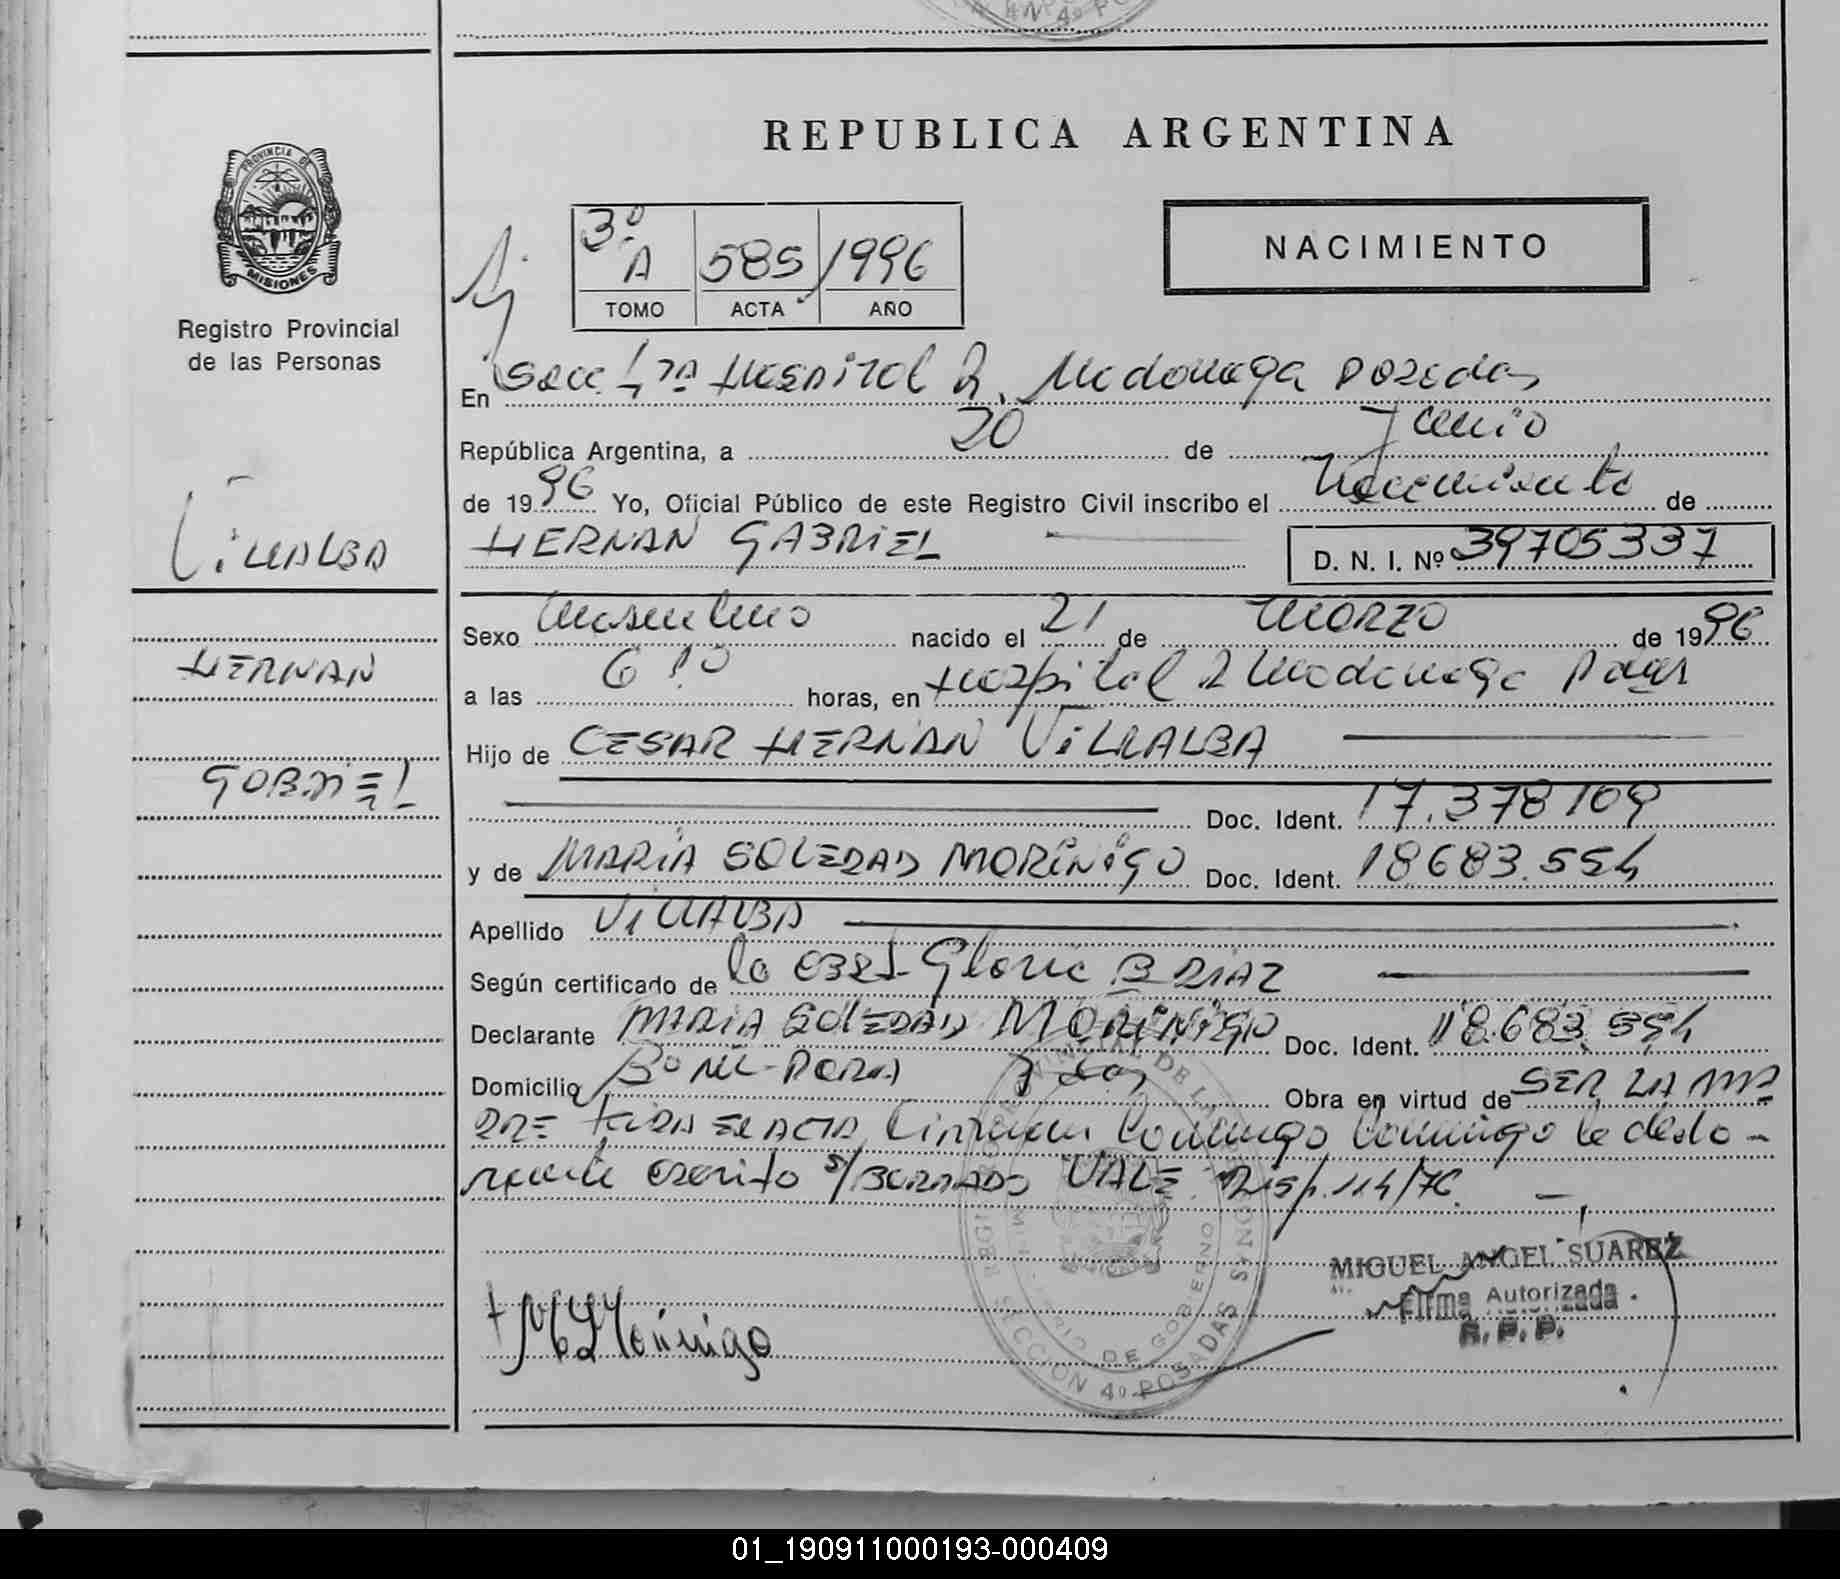 REPUBLICA ARGENTINA
PROVINCIA DE
MISIONES
Registro Provincial
de las Personas
3º A 585 1996
TOMO ACTA AÑO
NACIMIENTO
En Secc 4ta Hospital R. Madariaga Posadas
República Argentina, a 20 de Junio
de 1996 Yo, Oficial Público de este Registro Civil inscribo el Nacimiento de
HERNAN GABRIEL D. N. I. Nº 39705337
VILLALBA
HERNAN
GABRIEL
Sexo Masculino nacido el 21 de MARZO de 1996
a las 6 horas, en Hospital R Madariaga Pdas
Hijo de CESAR HERNAN VILLALBA
Doc. Ident. 17.378109
y de MARIA SOLEDAD MORINIGO Doc. Ident. 18683.554
Apellido VILLALBA
Según certificado de la OBST. Gloria B DIAZ
Declarante MARIA SOLEDAD MORINIGO Doc. Ident. 18.683.554
Domicilio Bº Pdas Obra en virtud de SER LA MA
DRE LEIDA EL ACTA la decla-
rante escrito s/BORRADO VALE. Disp. 114/76.
MIGUEL ANGEL SUAREZ
Firma Autorizada
R. P. P.
MSMorinigo
SECCION 4º POSADAS
01_190911000193-000409